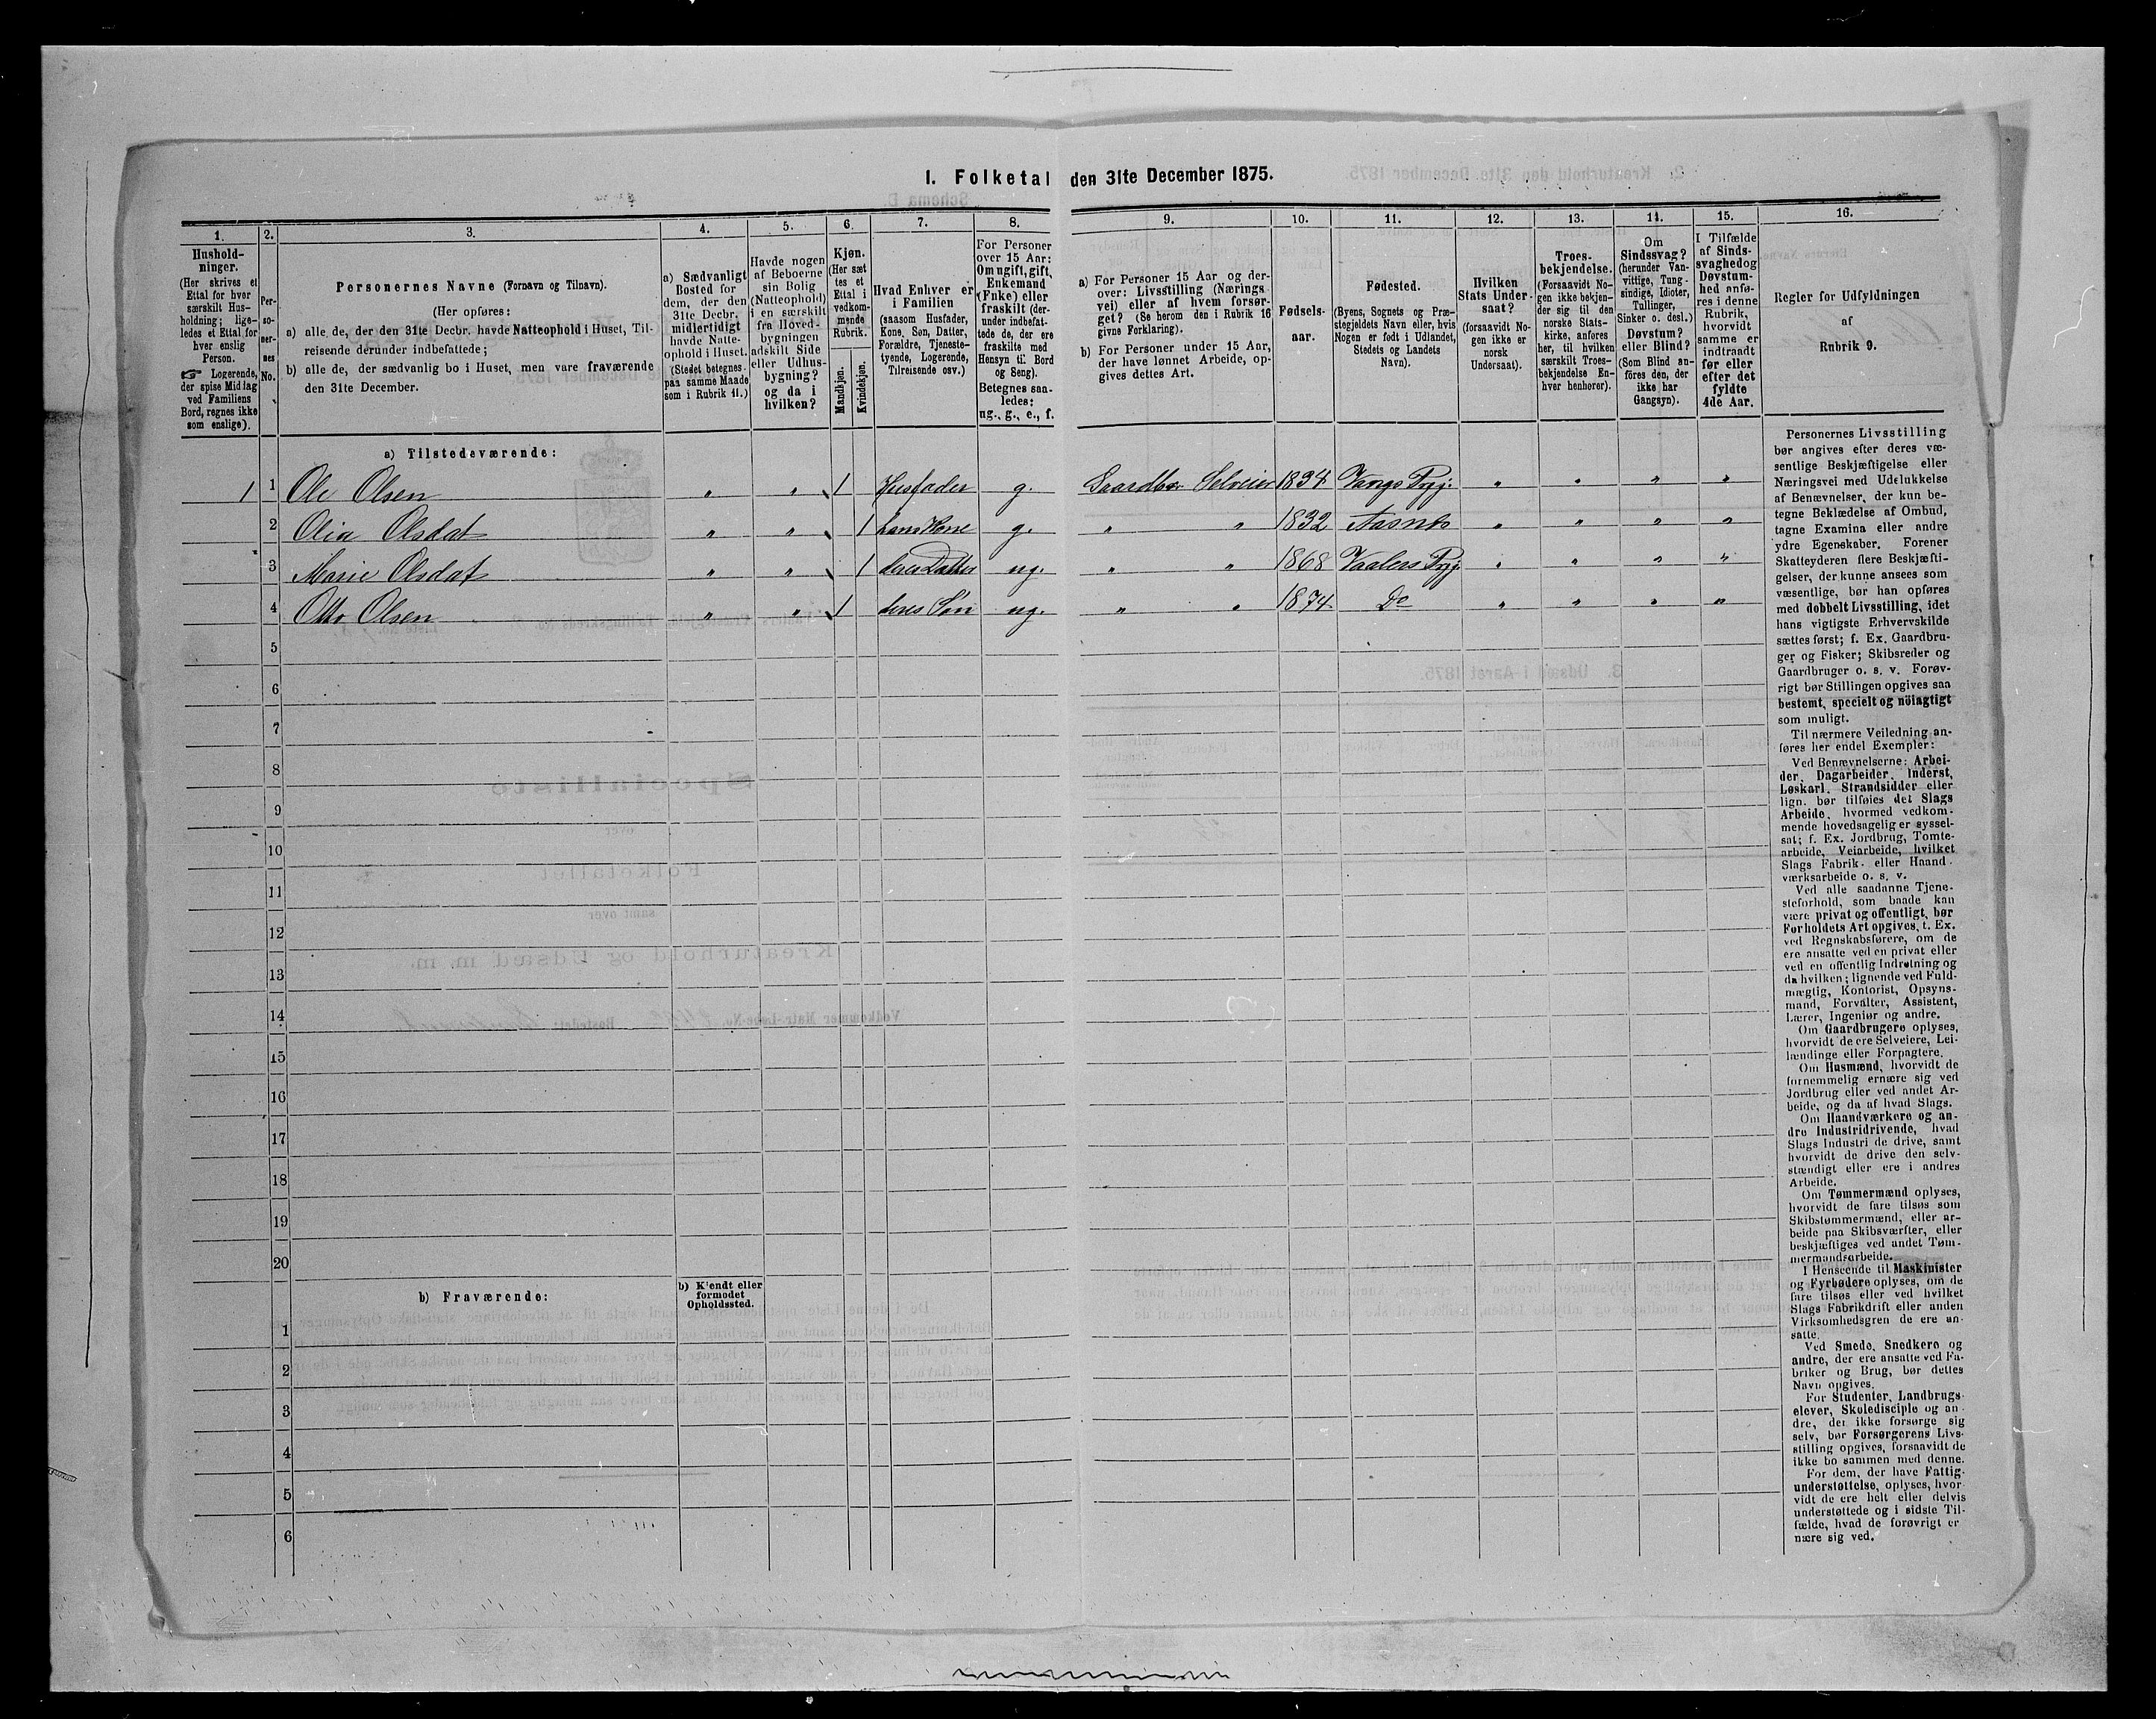 I. Folketal den 31te December 1875.
1.
Hushold-
ninger.
(Her skrives et
Ettal for hver
særskilt Hus-
holdning; lige-
ledes et Ettal for
hver enslig
Person.
☞ Logerende,
der spise Middag
ved Familiens
Bord, regnes ikke
som enslige).
2.
Per-
so-
ner-
nes
No.
3.
Personernes Navne (Fornavn og Tilnavn).
(Her opføres:
a) alle de, der den 31te Decbr. havde Natteophold i Huset, Til-
reisende derunder indbefattede;
b) alle de, der sædvanlig bo i Huset, men vare fraværende
den 31te December.
4.
a) Sædvanligt
Bosted for
dem, der den
31te Decbr.
midlertidigt
havde Natte-
ophold i Huset.
(Stedet betegnes
paa samme Maade
som i Rubrik 11.)
5.
Havde nogen
af Beboerne
sin Bolig
(Natteophold)
i en særskilt
fra Hoved-
bygningen
adskilt Side
eller Udhus-
bygning?
og da i
hvilken?
6.
Kjøn.
(Her sæt-
tes et
Ettal i
vedkom-
mende
Rubrik.
Mandkjøn.
Kvindekjøn.
7.
Hvad Enhver er
i Familien
(saasom Husfader,
Kone, Søn, Datter,
Forældre, Tjeneste-
tyende, Logerende,
Tilreisende osv.)
8.
For Personer
over 15 Aar:
Om ugift, gift,
Enkemand
(Enke) eller
fraskilt (der-
under indbefat-
tede de, der ere
fraskilte med
Hensyn til Bord
og Seng).
Betegnes saa-
ledes:
ug., g., e., f.
9.
a) For Personer 15 Aar og der-
over: Livsstilling (Nærings-
vei) eller af hvem forsør-
get? (Se herom den i Rubrik 16
givne Forklaring).
b) For Personer under 15 Aar,
der have lønnet Arbeide, op-
gives dettes Art.
10.
Fødsels-
aar.
11.
Fødested.
(Byens, Sognets og Præ-
stegjeldets Navn eller, hvis
Nogen er født i Udlandet,
Stedets og Landets
Navn).
12.
Hvilken
Stats Under-
saat?
(forsaavidt No-
gen ikke er
norsk
Undersaat).
13.
Troes-
bekjendelse.
(Forsaavidt No-
gen ikke bekjen-
der sig til den
norske Stats-
kirke, anføres
her, til hvilken
særskilt Troes-
bekjendelse En-
hver henhører).
14.
Om
Sindssvag?
(herunder Van-
vittige, Tung-
sindige, Idioter,
Tullinger,
Sinker o. desl.)
Døvstum?
eller Blind?
(Som Blind an-
føres den, der
ikke har
Gangsyn).
15.
I Tilfælde
af Sinds-
svaghed og
Døvstum-
hed anfø-
res i denne
Rubrik,
hvorvidt
samme er
indtraadt
før eller
efter det
fyldte
4de Aar.
16.
Regler for Udfyldningen
af
Rubrik 9.
a) Tilstedeværende:
1 1 Ole Olsen " " 1 Husfader g. Gaardbr Selveier 1834 Vangs Prgj. " " " "
2 Olia Olsdat " " 1 hans Kone g. " " 1832 Aasnes " " " "
3 Marie Olsdat " " 1 deres Datter ug. " " 1868 Vaalers Prgj. " " " "
4 Otto Olsen " " 1 deres Søn ug. " " 1874 Do " " " "
5
6
7
8
9
10
11
12
13
14
15
16
17
18
19
20
b) Fraværende:
b) Kjendt eller
formodet
Opholdssted.
1
2
3
4
5
6
Personernes Livsstilling
bør angives efter deres væ-
sentlige Beskjæftigelse eller
Næringsvei med Udelukkelse
af Benævnelser, der kun be-
tegne Beklædelse af Ombud,
tagne Examina eller andre
ydre Egenskaber. Forener
Skatteyderen flere Beskjæfti-
gelser, der kunne ansees som
væsentlige, bør han opføres
med dobbelt Livsstilling, idet
hans vigtigste Erhvervskilde
sættes først; f. Ex. Gaardbru-
ger og Fisker; Skibsreder og
Gaardbruger o. s. v. Forøv-
rigt bør Stillingen opgives saa
bestemt, specielt og nöiagtigt
som muligt.
Til nærmere Veiledning an-
føres her endel Exempler:
Ved Benævnelserne: Arbei-
der, Dagarbeider, Inderst,
Løskarl, Strandsidder eller
lign. bør tilføies det Slags
Arbeide, hvormed vedkom-
mende hovedsagelig er syssel-
sat; f. Ex. Jordbrug, Tomte-
arbeide, Veiarbeide, hvilket
Slags Fabrik- eller Haand-
værksarbeide o. s. v.
Ved alle saadanne Tjene-
steforhold, som baade kan
være privat og offentligt, bør
Forholdets Art opgives, t. Ex.
ved Regnskabsførere, om de
ere ansatte ved en privat eller
ved en offentlig Indretning og
da hvilken; lignende ved Fuld-
mægtig, Kontorist, Opsyns-
mand, Forvalter, Assistent,
Lærer, Ingeniør og andre.
Om Gaardbrugere oplyses,
hvorvidt de ere Selveiere, Lei-
lændinge eller Forpagtere.
Om Husmænd, hvorvidt de
fornemmelig ernære sig ved
Jordbrug eller ved andet Ar-
beide, og da af hvad Slags.
Om Haandværkere og an-
dre Industridrivende, hvad
Slags Industri de drive, samt
hvorvidt de drive den selv-
stændigt eller ere i andres
Arbeide.
Om Tømmermænd oplyses,
hvorvidt de fare tilsøs som
Skibstømmermænd, eller ar-
beide paa Skibsværfter, eller
beskjæftiges ved andet Tøm-
mermandsarbeide.
I Henseende til Maskinister
og Fyrbødere oplyses, om de
fare tilsøs eller ved hvilket
Slags Fabrikdrift eller anden
Virksomhedsgren de ere an-
satte.
Ved Smede, Snedkere og
andre, der ere ansatte ved Fa-
briker og Brug, bør dettes
Navn opgives.
For Studenter, Landbrugs-
elever, Skoledisciple og an-
dre, der ikke forsørge sig
selv, bør Forsørgerens Livs-
stilling opgives, forsaavidt de
ikke bo sammen med denne.
For dem, der have Fattig-
understøttelse, oplyses, hvor-
vidt de ere helt eller delvis
understøttede og i sidste Til-
fælde, hvad de forøvrigt er-
nære sig ved.